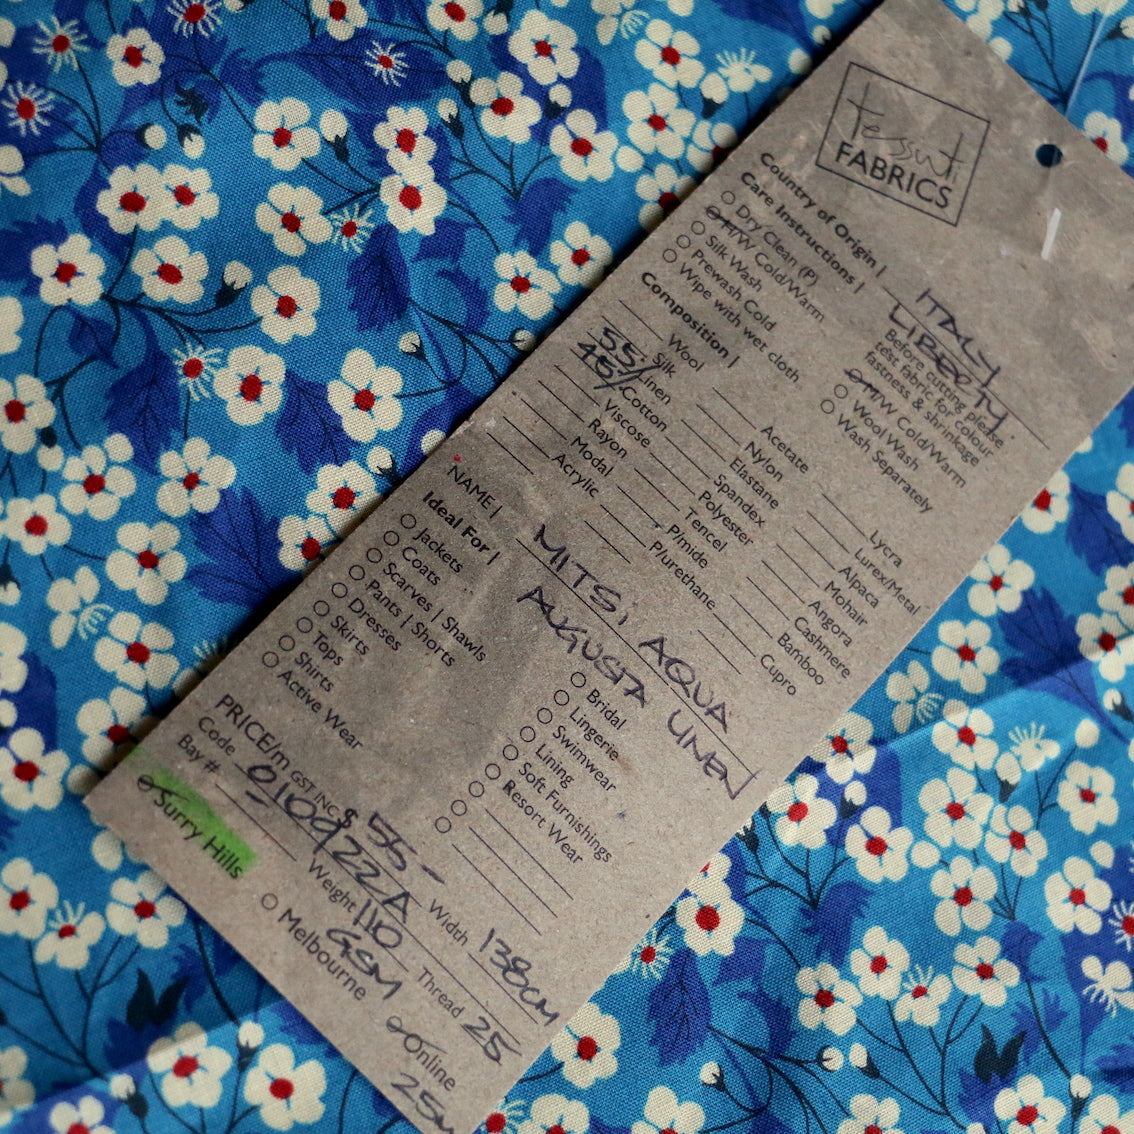 Tessuti
FABRICS
Country of Origin | ITALY
Care Instructions | LIBERTY
Dry Clean (P)
H/W Cold/Warm
Silk Wash
Prewash Cold
Wipe with wet cloth
Before cutting please
test fabric for colour
fastness & shrinkage
M/W Cold/Warm
Wool Wash
Wash Separately
Composition |
Wool
Silk
55% Linen
45% Cotton
Viscose
Rayon
Modal
Acrylic
Acetate
Nylon
Elastane
Spandex
Polyester
Tencel
P/mide
P/urethane
Lycra
Lurex/Metal
Alpaca
Mohair
Angora
Cashmere
Bamboo
Cupro
NAME | MITSI AQUA
AUGUSTA LINEN
Ideal For |
Jackets
Coats
Scarves | Shawls
Pants | Shorts
Dresses
Skirts
Tops
Shirts
Active Wear
Bridal
Lingerie
Swimwear
Lining
Soft Furnishings
Resort Wear
PRICE/m GST INC $ 55-
Width 138CM
Code
Weight 110 GSM
Thread 25
Bay #
Surry Hills
Melbourne
Online